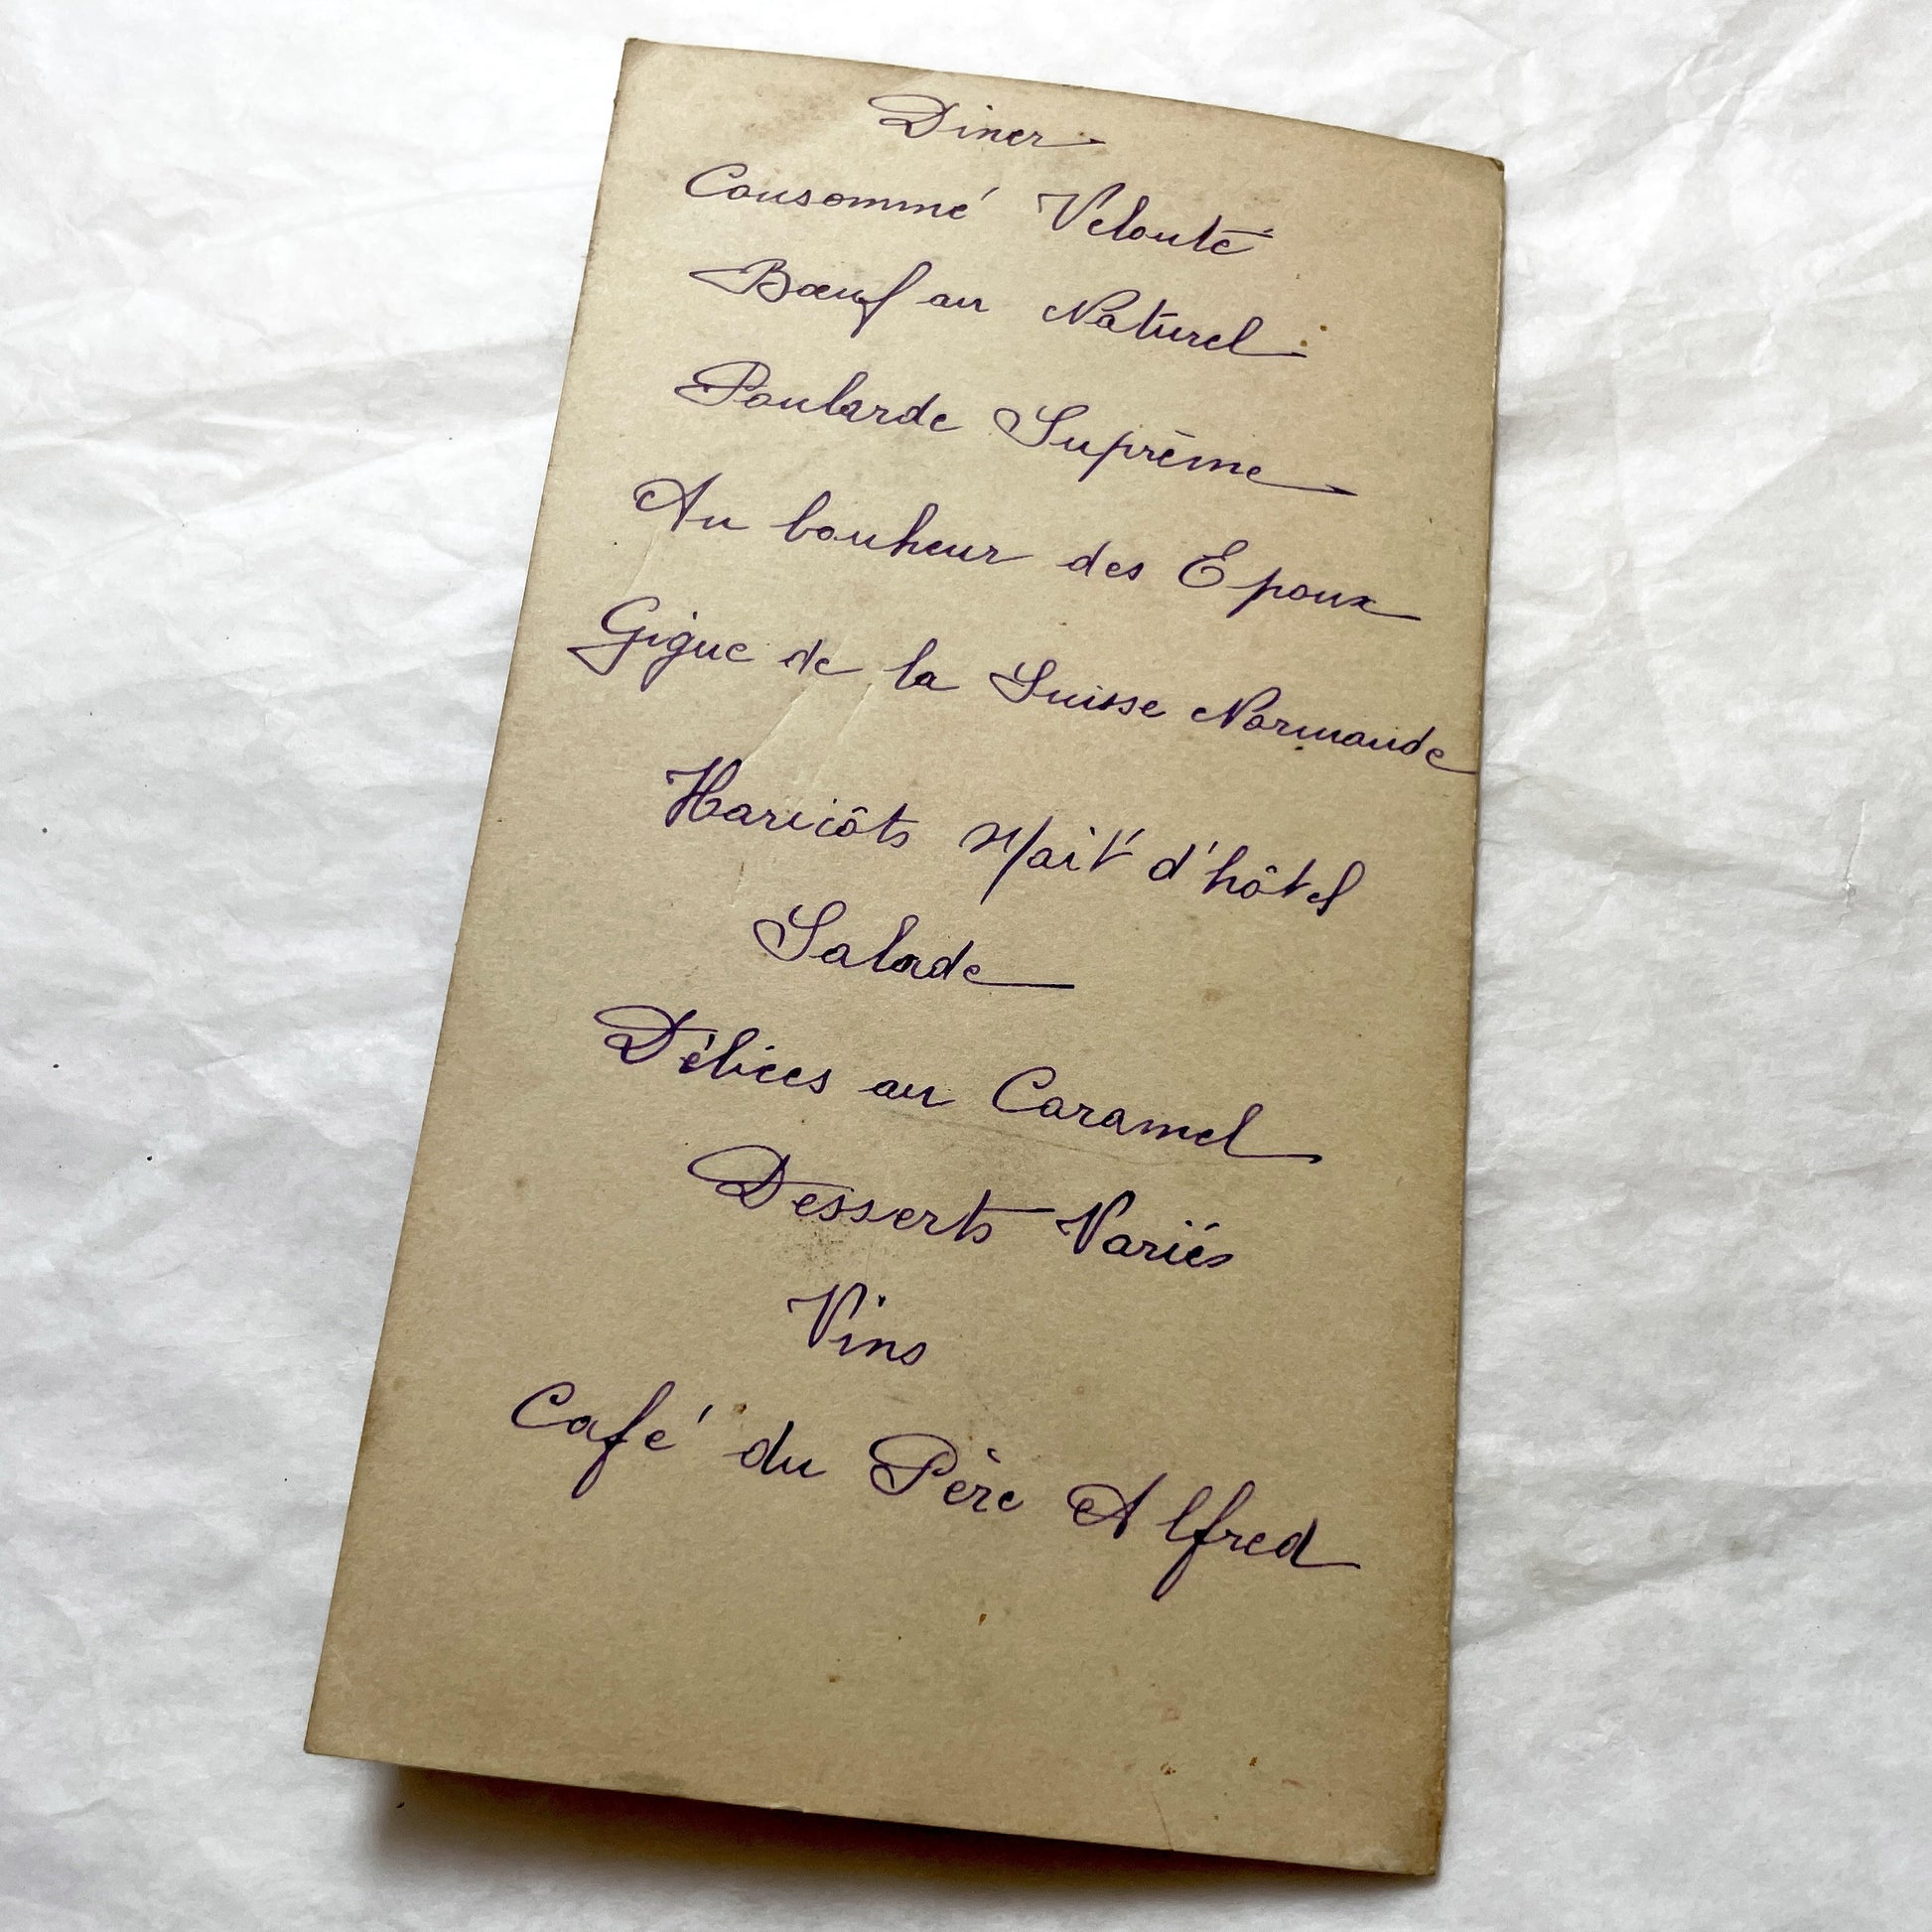 Diner
Consommé Velouté
Bœuf au Naturel
Poularde Suprême
Au bonheur des Epoux
Gigue de la Suisse Normande
Haricôts Mait' d'hôtel
Salade
Délices au Caramel
Desserts Variés
Vins
Café du Père Alfred